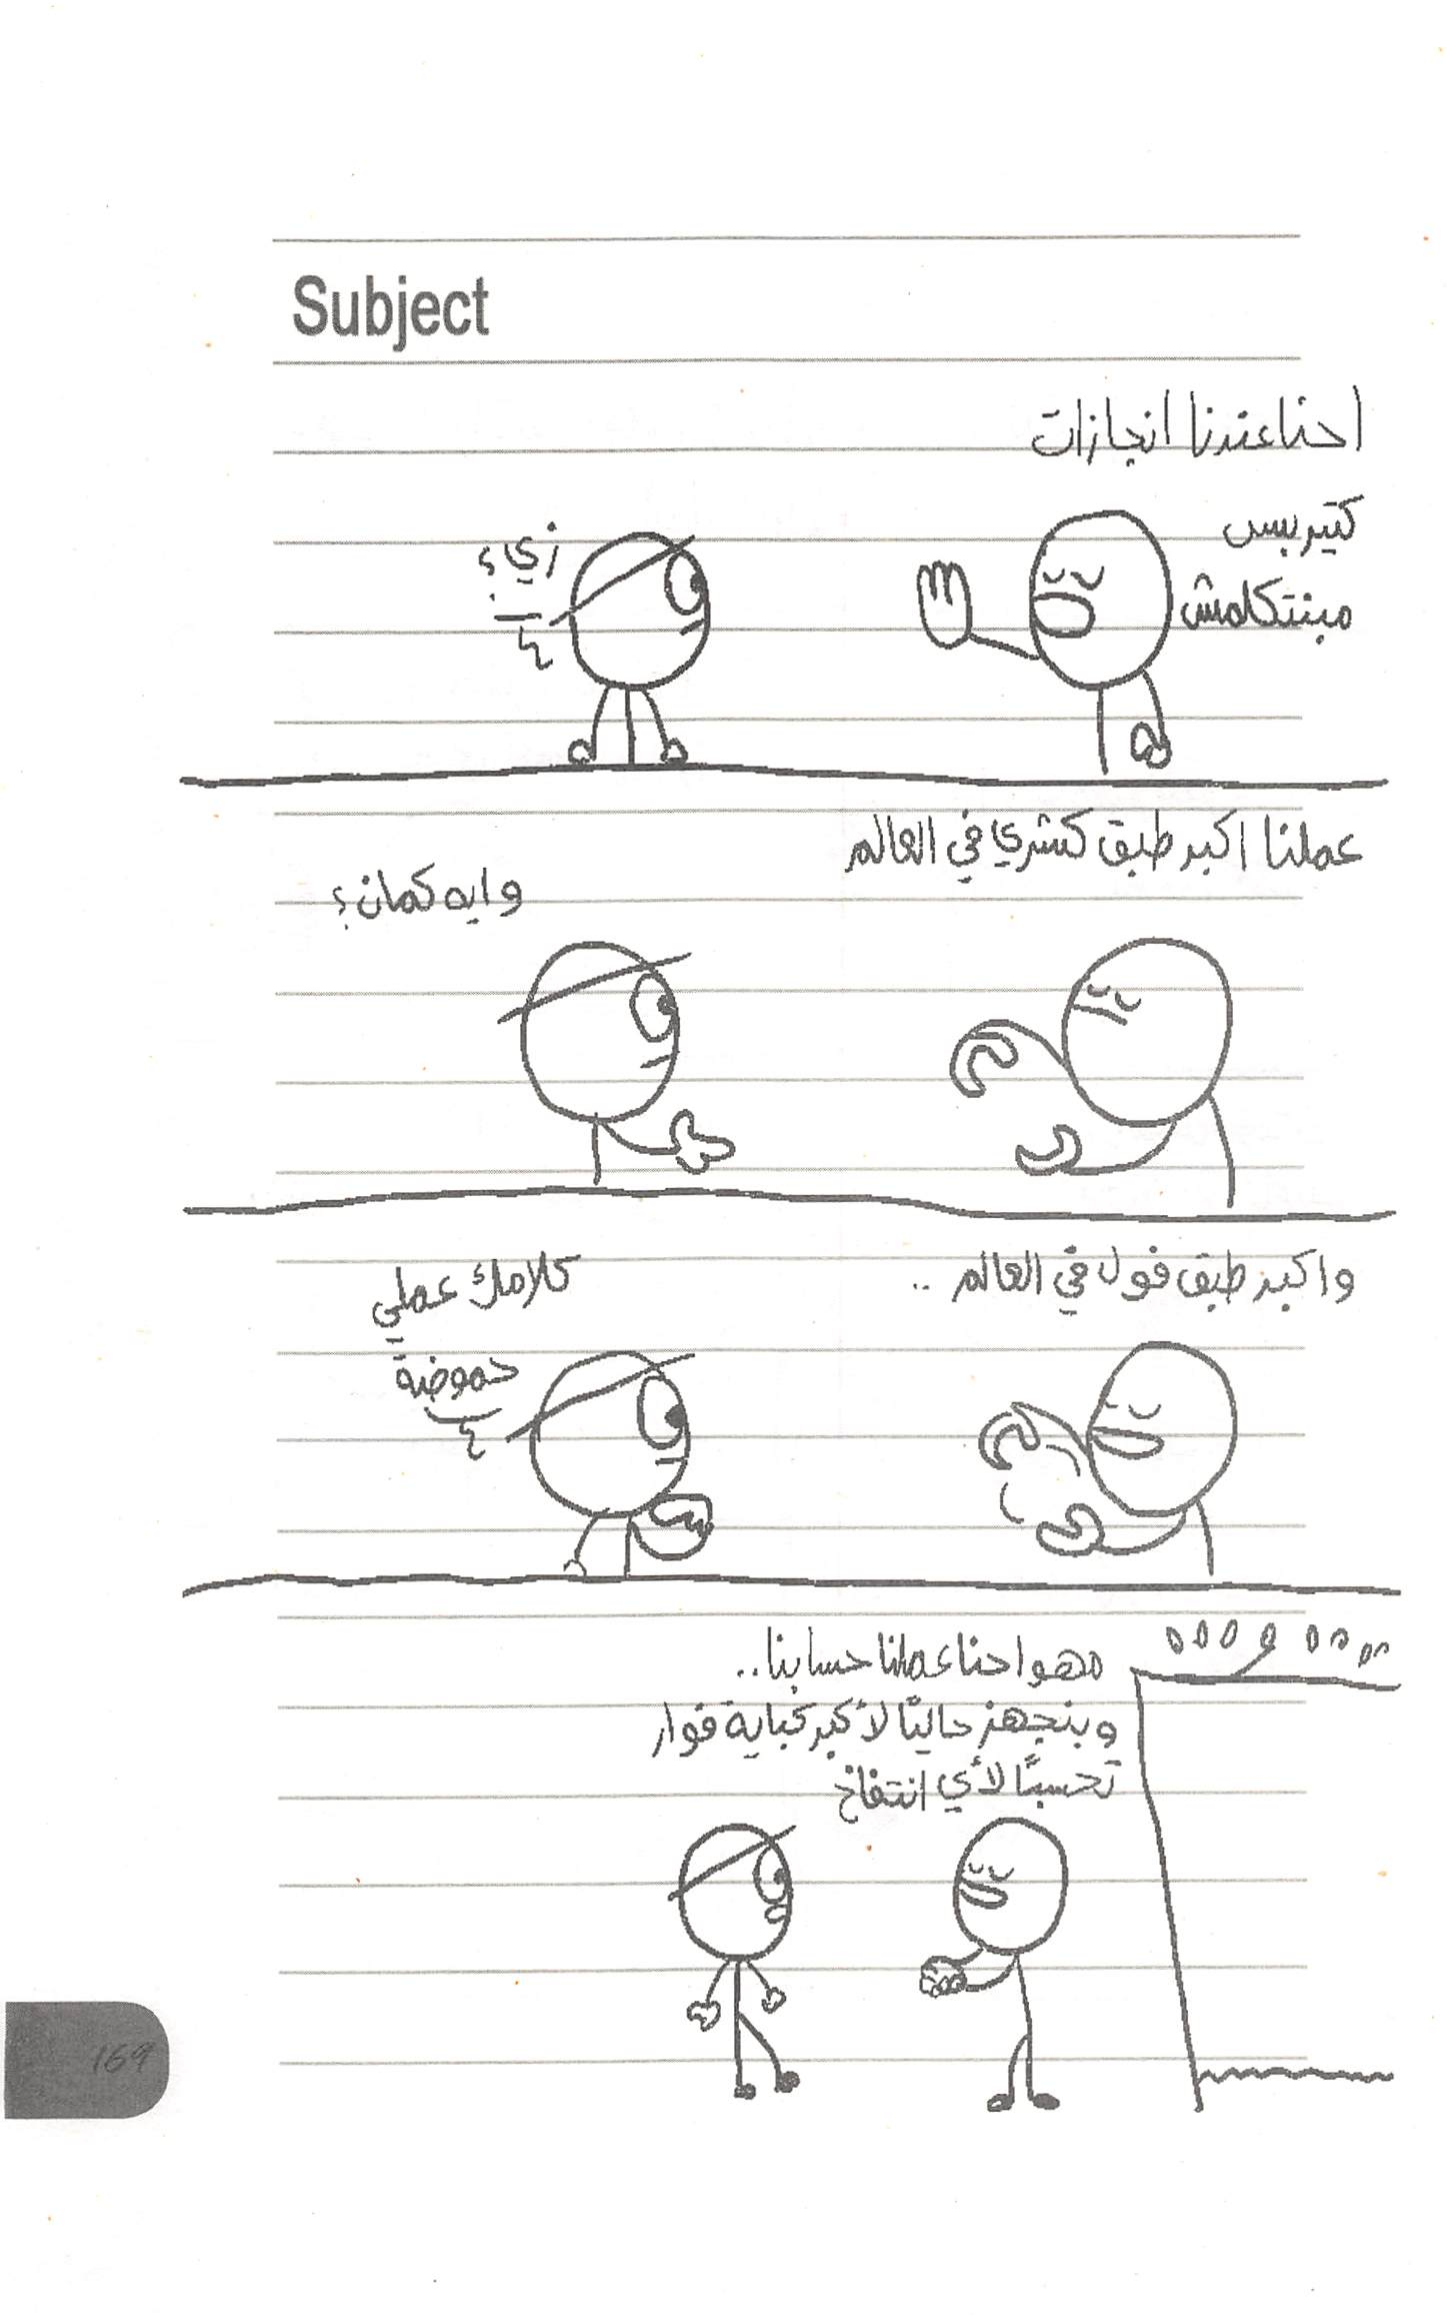 Subject
احنا عندنا انجازات
كتير بس
مبنتكلمش
زي؟
عملنا اكبر طبق كشري في العالم
وايه كمان؟
واكبر طبق فول في العالم ..
كلامك عملي
حموضة
مهو احنا عملنا حسابنا..
وبنجهز حاليًا لأكبر كباية فوار
تحسبًا لأي انتفاخ
169